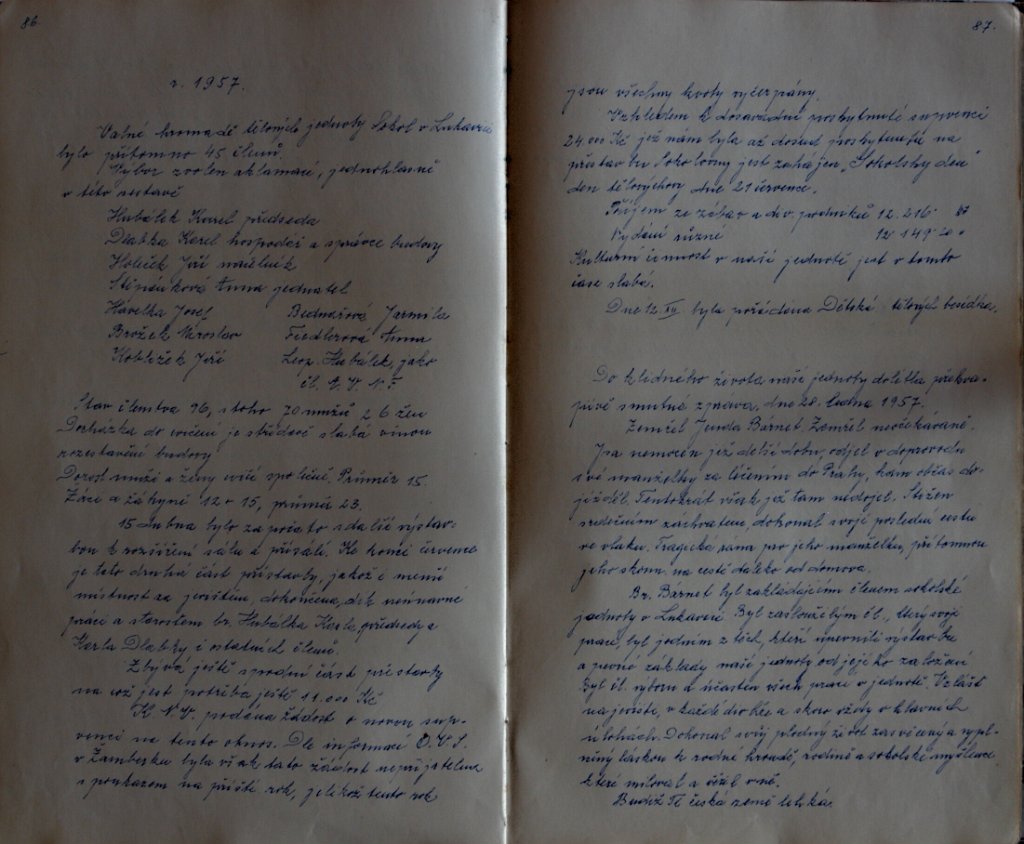 86
r. 1957.
Valné hromadě tělových. jednoty Sokol v Lukavici
bylo přítomno 45 členů.
Výbor zvolen aklamací, jednohlasně
v této sestavě
Hubálek Karel předseda
Dlabka Karel hospodář a správce budovy
Holeček Jiří náčelník
Štěpánková Anna jednatel
Havelka Josef Bednářová Jarmila
Brožek Jaroslav Fiedlerová Anna
Koblížek Jiří Leop. Hubálek, jako
čl. M. V. N. F.
Stav členstva 96, z toho 70 mužů 26 žen
Docházka do cvičení je středně slabá vinou
rozestavění budovy.
Dorost muži a ženy cvičí společně. Průměr 15.
Žáci a žákyně 12 + 15, průměr 23.
15 dubna bylo započato s další výstav-
bou k rozšíření sálu a přísálí. Ke konci července
je tato druhá část přístavby, jakož i menší
místnost za jevištěm, dokončena, dík neúnavné
práci a starostem br. Hubálka Karla, předsedy a
Karla Dlabky i ostatních členů.
Zbývá ještě spodní část přístavby
na což jest potřeba ještě 11.000 Kč
K. N. V. podána žádost o novou sub-
venci na tento obnos. Dle informací O. V. S.
v Žamberku byla však tato žádost nepřijatelna
s poukazem na příští rok, jelikož tento rok
87.
jsou všechny kvoty vyčerpány.
Vzhledem k dosavadní poskytnuté subvenci
24.000 Kč jež nám byla až dosud poskytnuta na
přístavbu Sokolovny jest zahájen „Sokolský den"
den tělovýchovy dne 21 července.
Příjem ze zábav a div. podniků 12.216
Vydání různé 12 149 20
Kulturní činnost v naší jednotě jest v tomto
čase slabá.
Dne 12. XII. byla pořádána Dětská tělových. besídka.
Do klidného života naší jednoty dolétla překva-
pivě smutná zpráva, dne 28. ledna 1957.
Zemřel Jenda Barnet. Zemřel neočekávaně.
Jsa nemocen již delší dobu, odjel v doprovodu
své manželky za léčením do Prahy, kam občas do-
jížděl. Tentokrát však již tam nedojel. Stižen
srdečním záchvatem dokonal svoji poslední cestu
ve vlaku. Tragická rána pro jeho manželku, přítomnou
jeho skonu na cestě daleko od domova.
Br. Barnet byl zakládajícím členem sokolské
jednoty v Lukavici. Byl zasloužilým čl., který svojí
prací, byl jedním z těch, kteří upevnili výstavbu
a pevné základy naší jednoty od jejího založení
Byl čl. výboru a účasten všech prací v jednotě. Vzlášť
na jevišti, v každé době a skoro vždy v hlavních
úlohách. Dokonal svůj plodný život zasvěcený a vypl-
něný láskou k rodné hroudě, rodině a sokolské myšlence
které miloval a věřil v ně.
Budiž Ti česká země lehká.